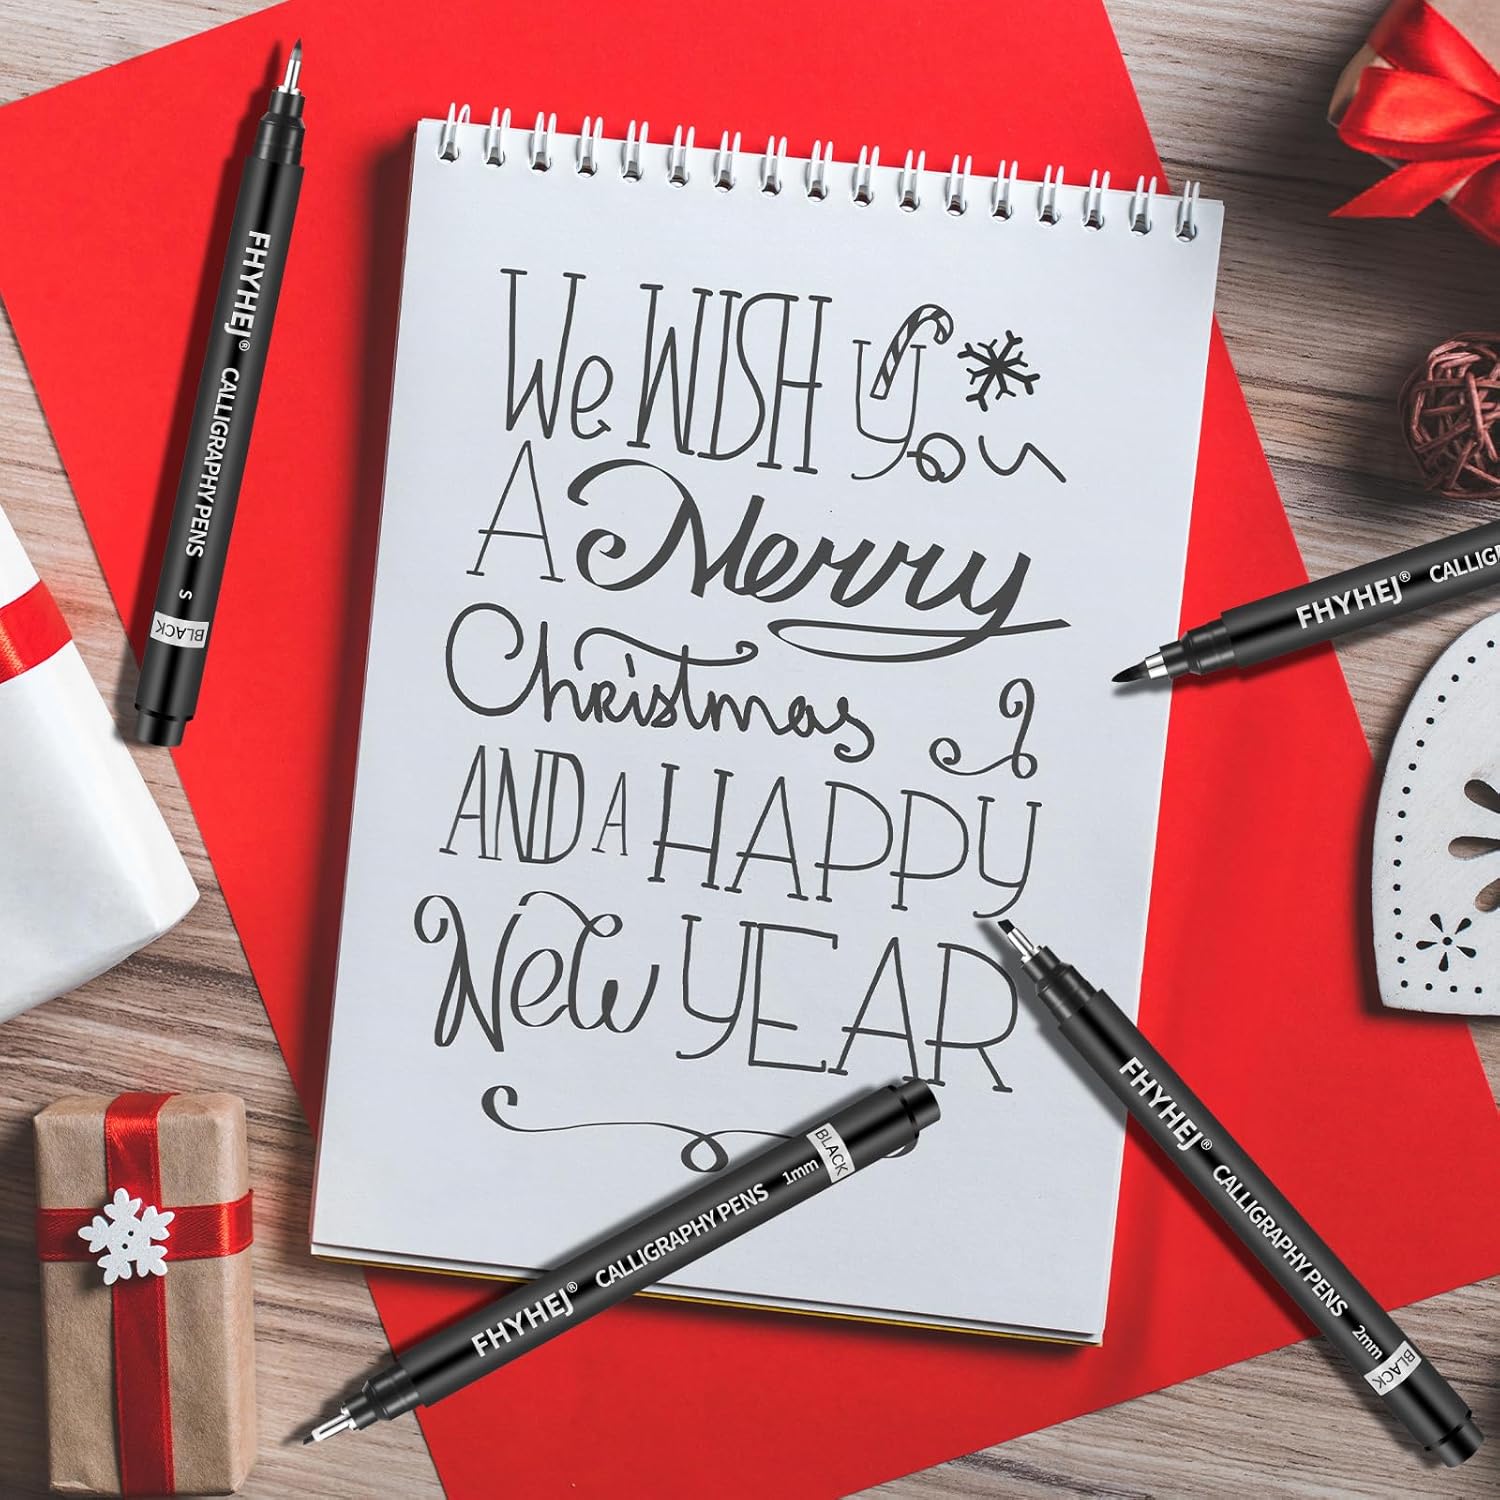 We WISH you
A Merry
Christmas
AND A HAPPY
New YEAR
FHYHEJ® CALLIGRAPHY PENS S BLACK
FHYHEJ®
FHYHEJ® CALLIGRAPHY PENS 1mm BLACK
FHYHEJ® CALLIGRAPHY PENS 2mm BLACK